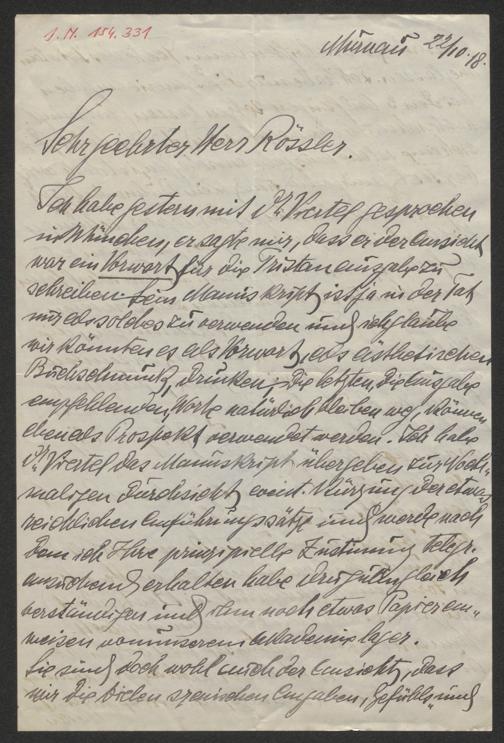 I.N. 154.331
Murnau 22/10.18.
Sehr geehrter Herr Rössler.
Ich habe gestern mit Dr. Viertel gesprochen
in München, er sagte mir, dass er der Ansicht
war ein Vorwort für die Tristanausgabe zu
schreiben. Sein Manuskript ist ja in der Tat
nur als solches zu verwenden und ich glaube
wir könnten es als Vorwort, als ästhetischen
Buchschmuck, drucken; die letzten, die Ausgabe
empfehlenden Worte natürlich bleiben weg, können
eben als Prospekt verwendet werden. Ich habe
Dr. Viertel das Manuskript übergeben zur Noch-
maligen Durchsicht, event. Kürzung der etwas
reichlichen Einführungssätze und werde nach
dem ich Ihre prinzipielle Zustimmung telegr.
erhalten habe gleich
verständigen und ihm noch etwas Papier an-
weisen von unserem Akademielager.
Sie sind doch wohl auch der Ansicht, dass
wir die vielen szenischen Angaben, Gefühls- und